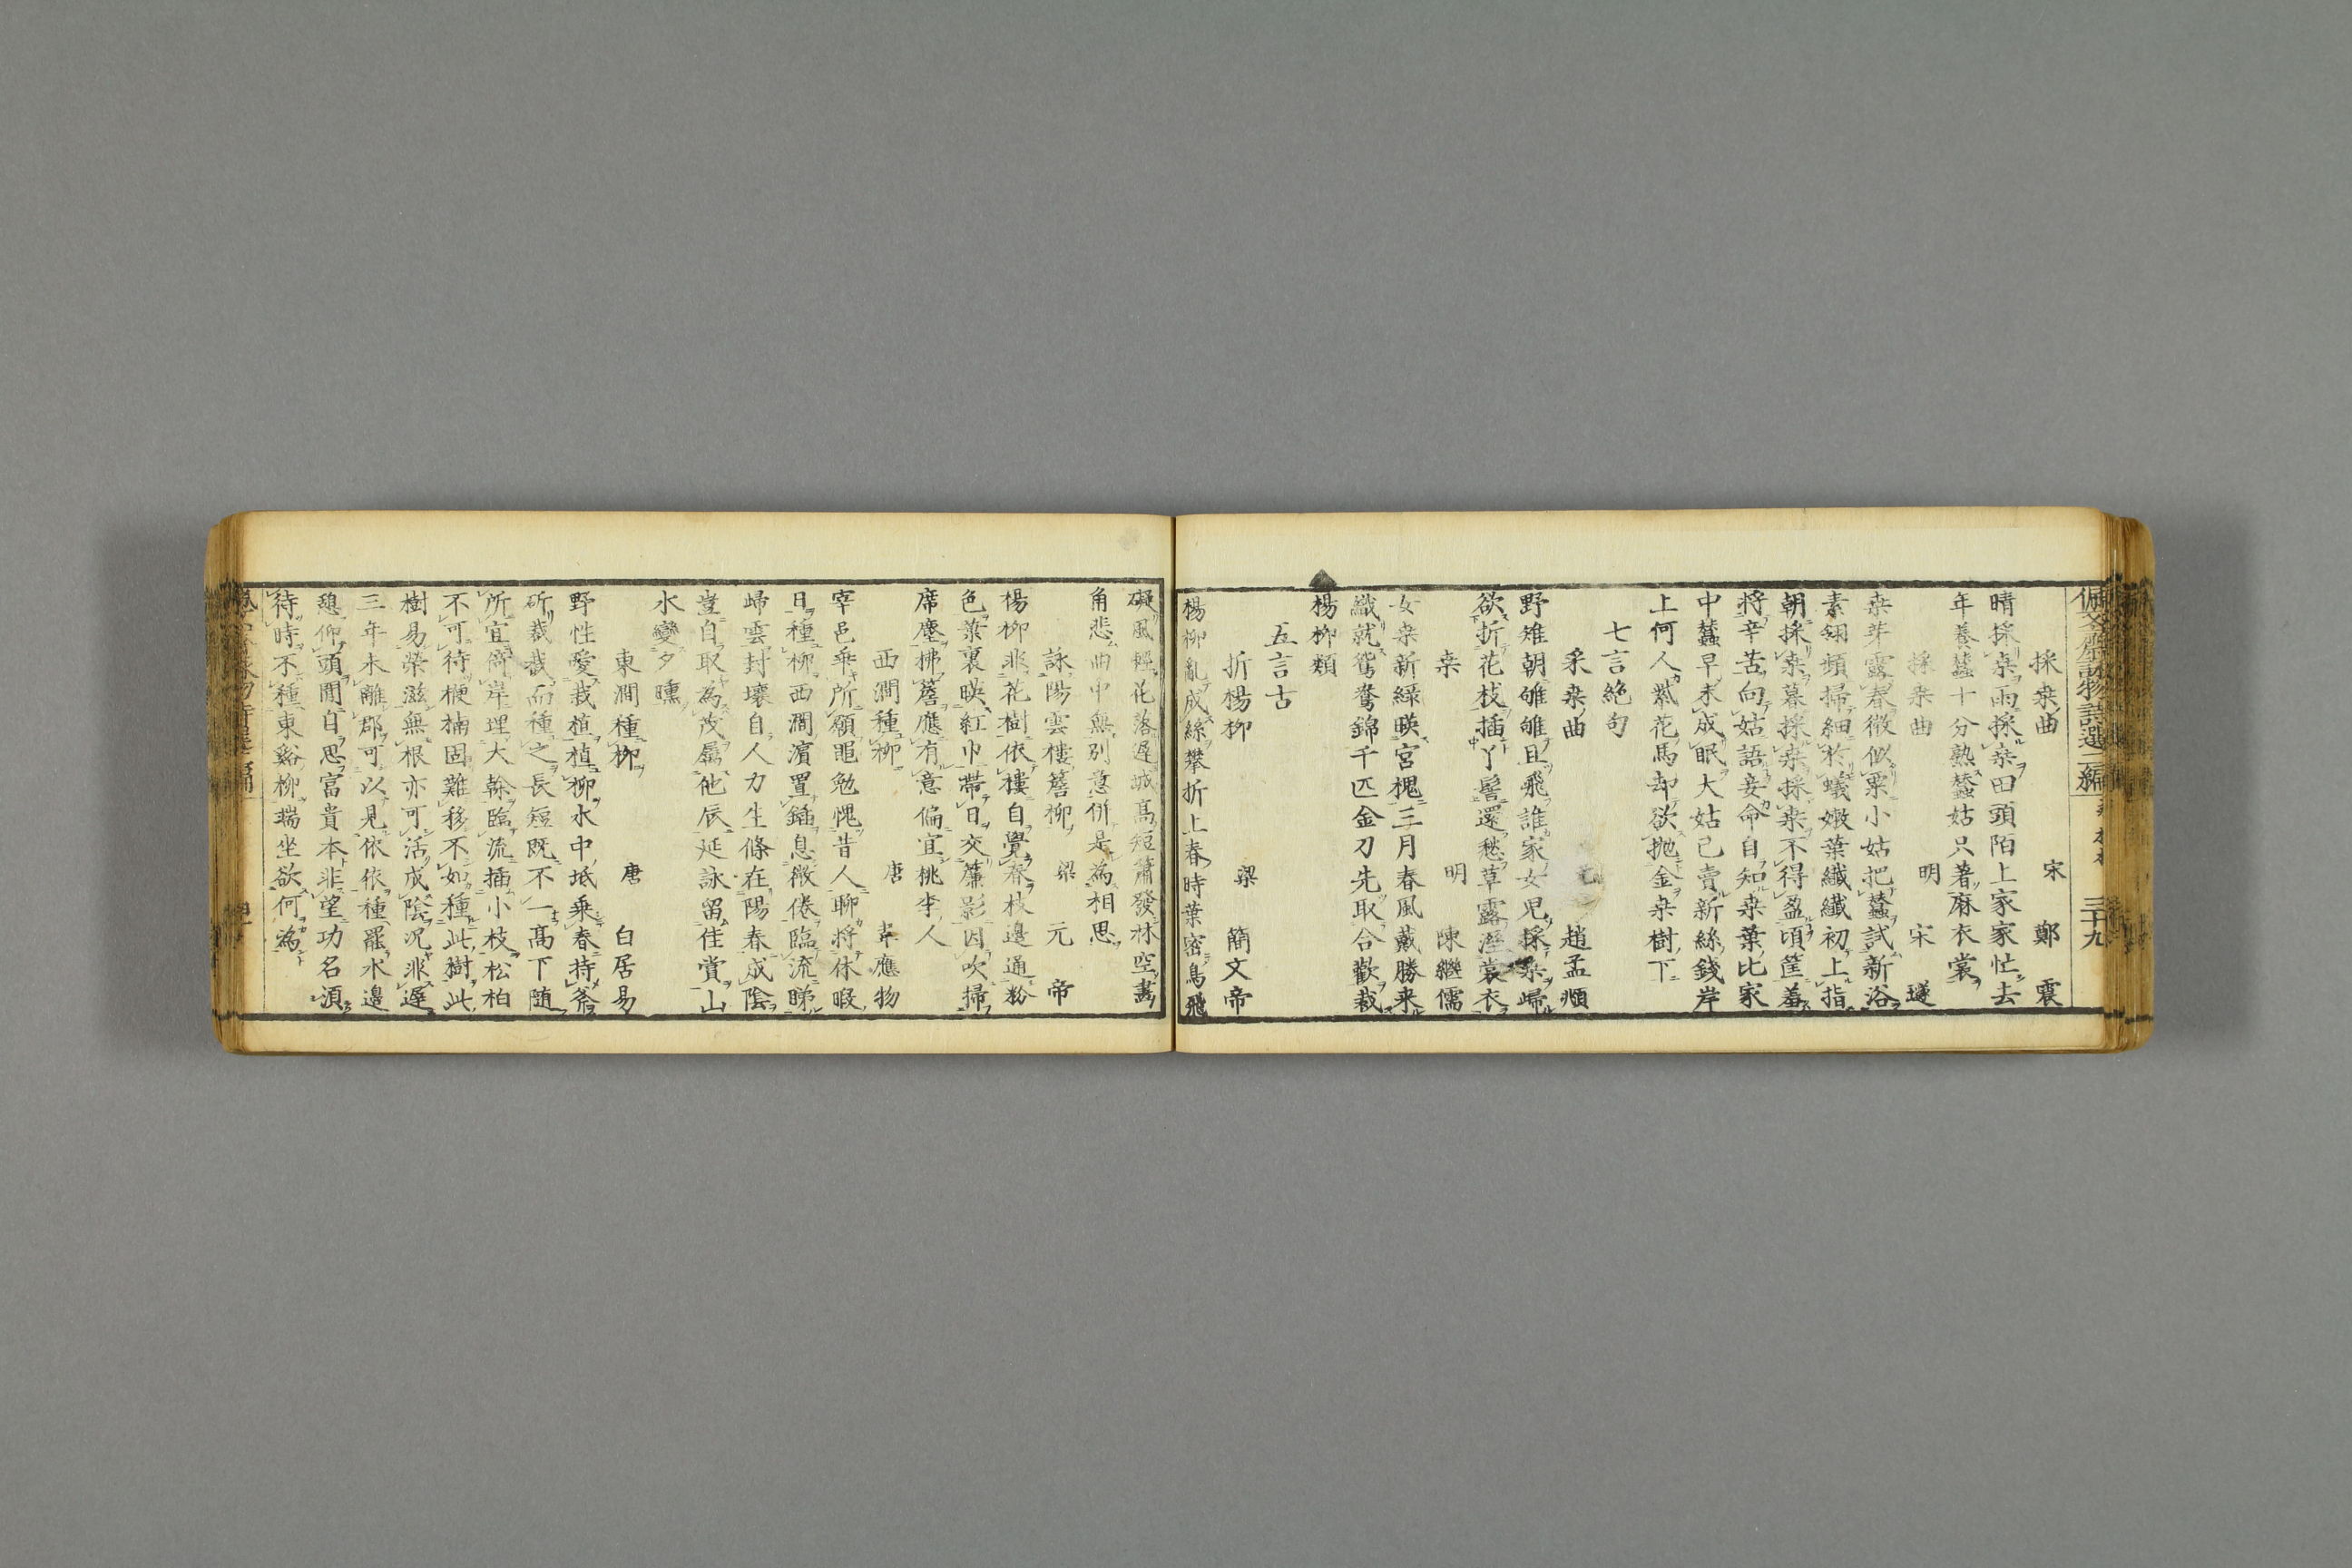 佩文齋詠物詩選二編 三十九
採桒曲 宋 鄭 震
晴採桒雨採桒田頭陌上家家忙去
年養蠶十分熟蠶姑只著麻衣裳
採桒曲 明 宋 璲
桒芽露春微似粟小姑把蠶試新浴
素翎頻掃細於蟻嫩葉纖纖初上指
朝採桒暮採桒採桒不得盈頃筐羞
將辛苦向姑語妾命自知桒葉比家
中蠶早未成眠大姑已賣新絲錢岸
上何人繫花馬却欲拋金桒樹下
七言絶句
采桒曲 元 趙孟頫
野雉朝雊雊且飛誰家女児採桒歸
欲折花枝插丫髻還愁草露溼裳衣
桒 明 陳繼儒
女桒新緑暎宮槐三月春風戴勝来
織就鴛鴦錦千匹金刀先取合歡裁
楊柳類
五言古
折楊柳 梁 簡文帝
楊柳亂成絲攀折上春時葉密鳥飛
礙風輕花落遲城髙短簫發林空畫
角悲曲中無別意併是為相思
詠陽雲樓簷柳 梁 元 帝
楊柳非花樹依樓自覺春枝邊通粉
色葉裏暎紅巾帶日交簾影因吹掃
席塵拂簷應有意偏宜桃李人
西澗種柳 唐 韋應物
宰邑乖所願黽勉愧昔人聊将休暇
日種柳西澗濱置鍤息微倦臨流睇
歸雲封壤自人力生條在陽春成陰
豈自取為茂屬他辰延詠留佳賞山
水變夕曛
東澗種柳 唐 白居易
野性愛栽植植柳水中坻乗春持斧
斫裁截而種之長短既不一髙下随
所宜倚岸埋大榦臨流插小枝松柏
不可待楩楠固難移不如種此樹此
樹易榮滋無根亦可活成陰况非遲
三年未離郡可以見依依種罷水邊
憩仰頭閒自思富貴本非望功名須
待時不種東谿柳端坐欲何為